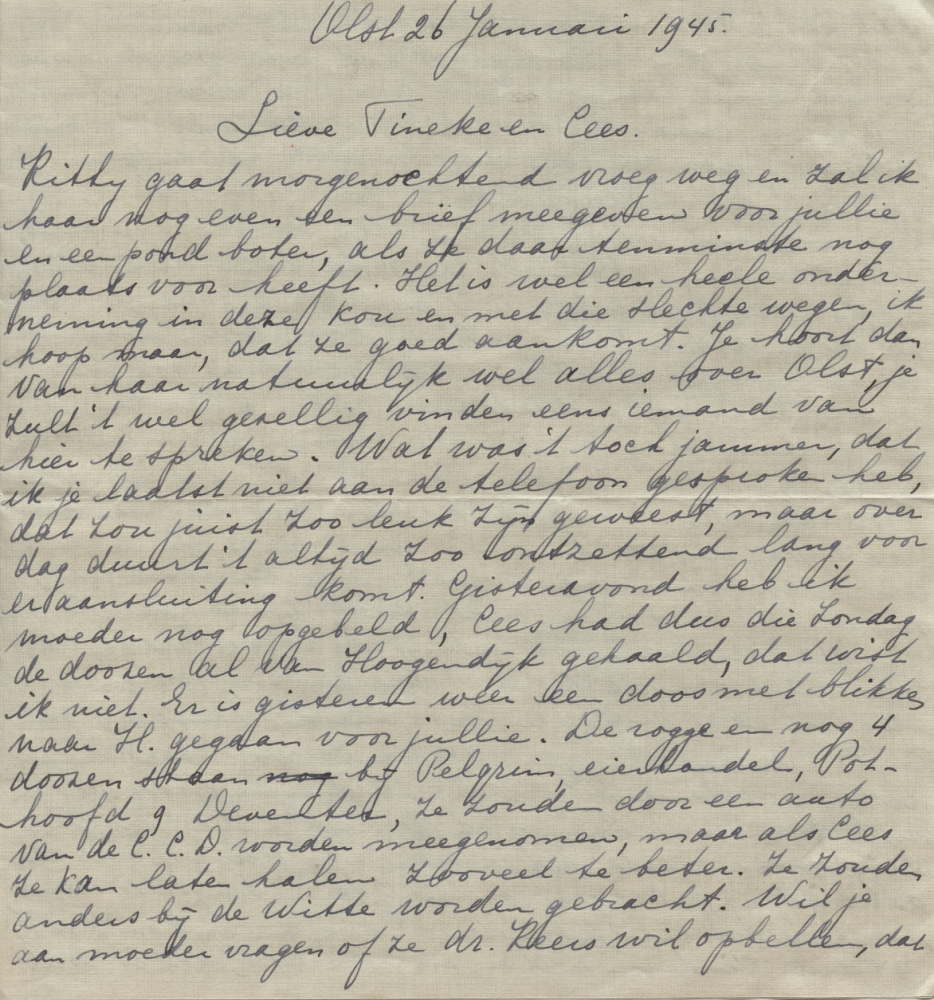 Olst 26 Januari 1945.
Lieve Tineke en Cees.
Kitty gaat morgenochtend vroeg weg en zal ik
haar nog even een brief meegeven voor jullie
en een pond boter, als ze daar tenminste nog
plaats voor heeft. Het is wel een heele onder-
neming in deze kou en met die slechte wegen, ik
hoop maar, dat ze goed aankomt. Je hoort dan
van haar natuurlijk wel alles over Olst, je
zult 't wel gezellig vinden eens iemand van
hier te spreken. Wat was 't toch jammer, dat
ik je laatst niet aan de telefoon gesproken heb,
dat zou juist zoo leuk zijn geweest, maar over
dag duurt 't altijd zoo ontzettend lang voor
er aansluiting komt. Gisteravond heb ik
moeder nog opgebeld, Cees had dus die Zondag
de doozen al van Hoogendijk gehaald, dat wist
ik niet. Er is gisteren weer een doos met blikken
naar H. gegaan voor jullie. De rogge en nog 4
doozen staan nog bij Pelgrim, eierhandel, Pot-
hoofd 9 Deventer, ze zouden door een auto
van de C. C. D. worden meegenomen, maar als Cees
ze kan laten halen zooveel te beter. Ze zouden
anders bij de Witte worden gebracht. Wil je
aan moeder vragen of ze dr. Keers wil opbellen, dat